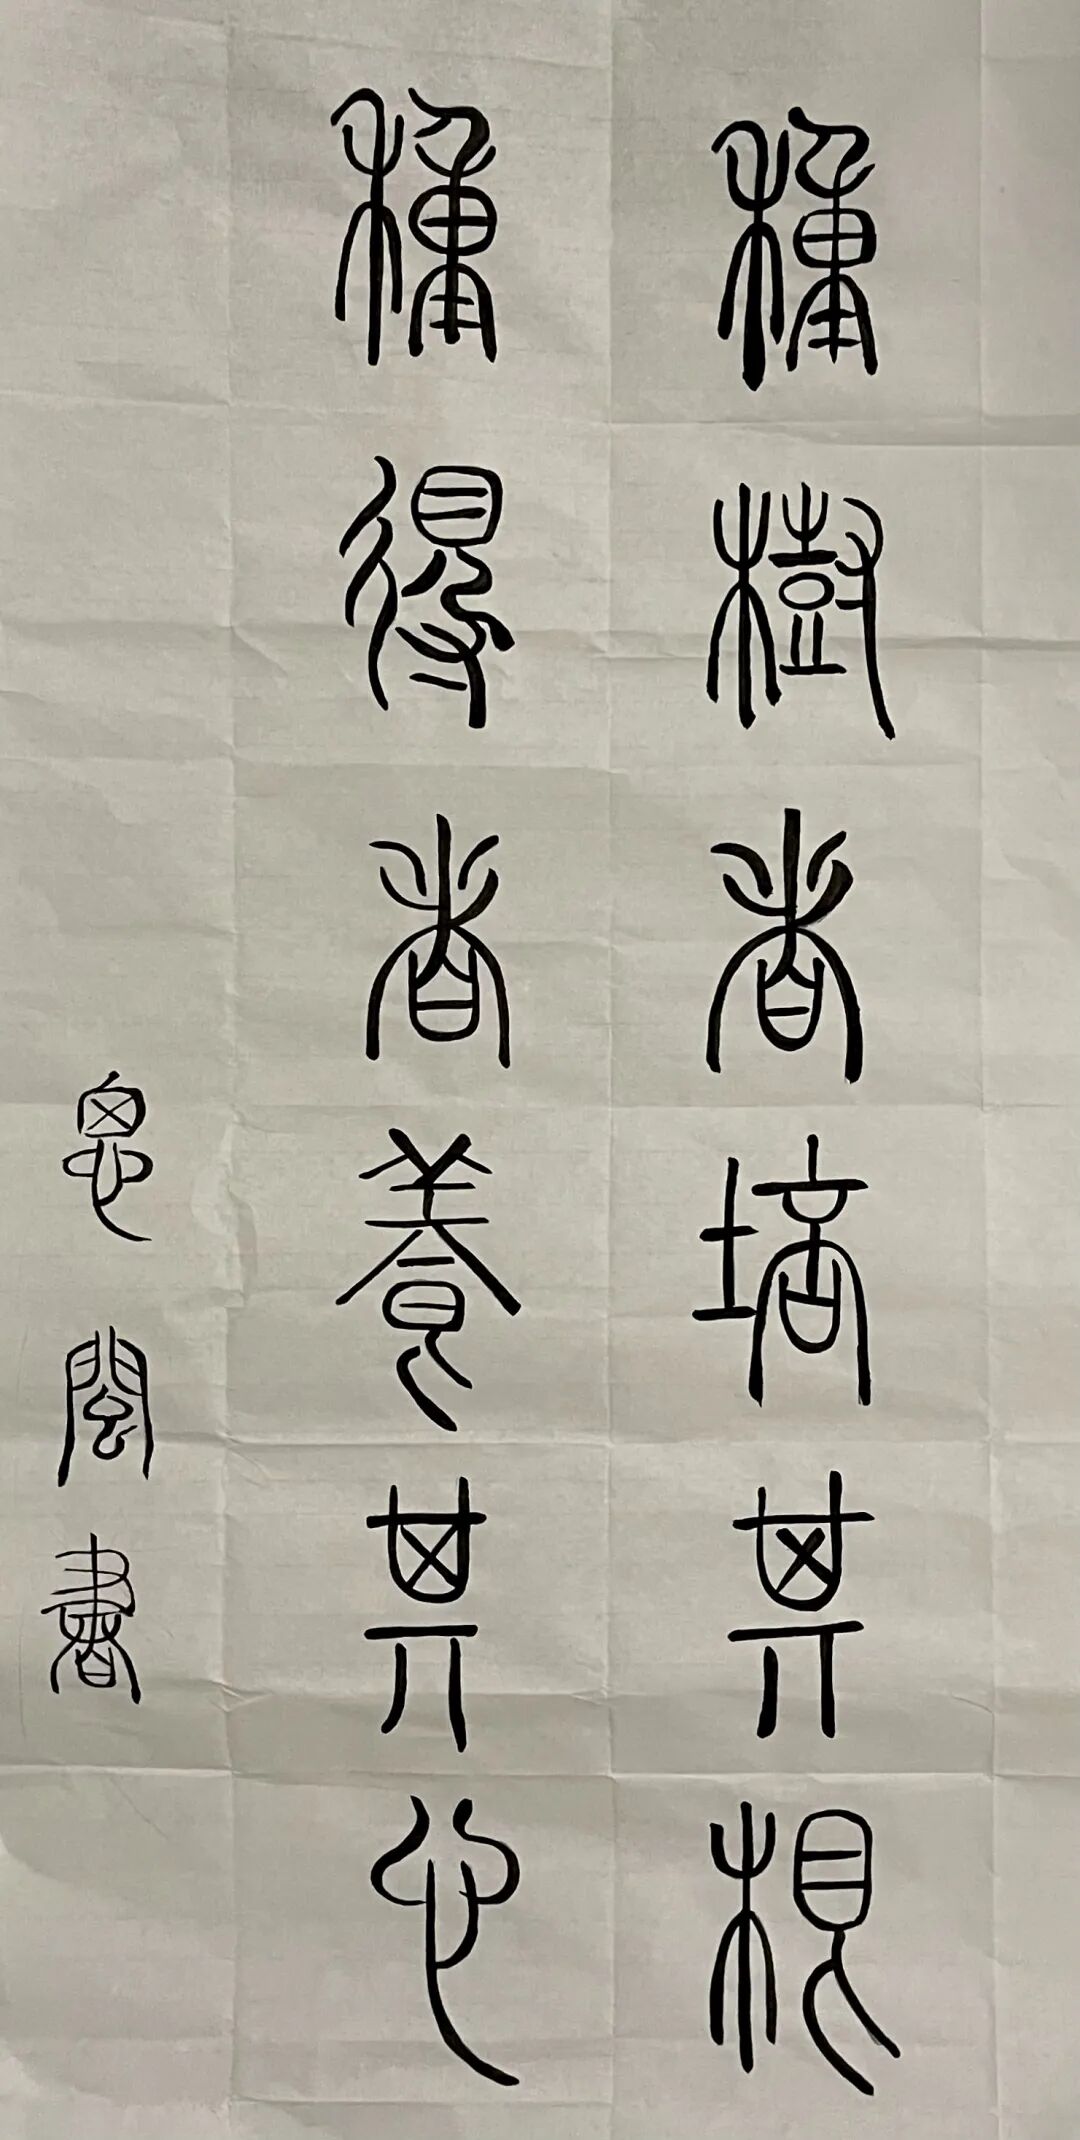 種樹者培其根
種得者養其心
思書